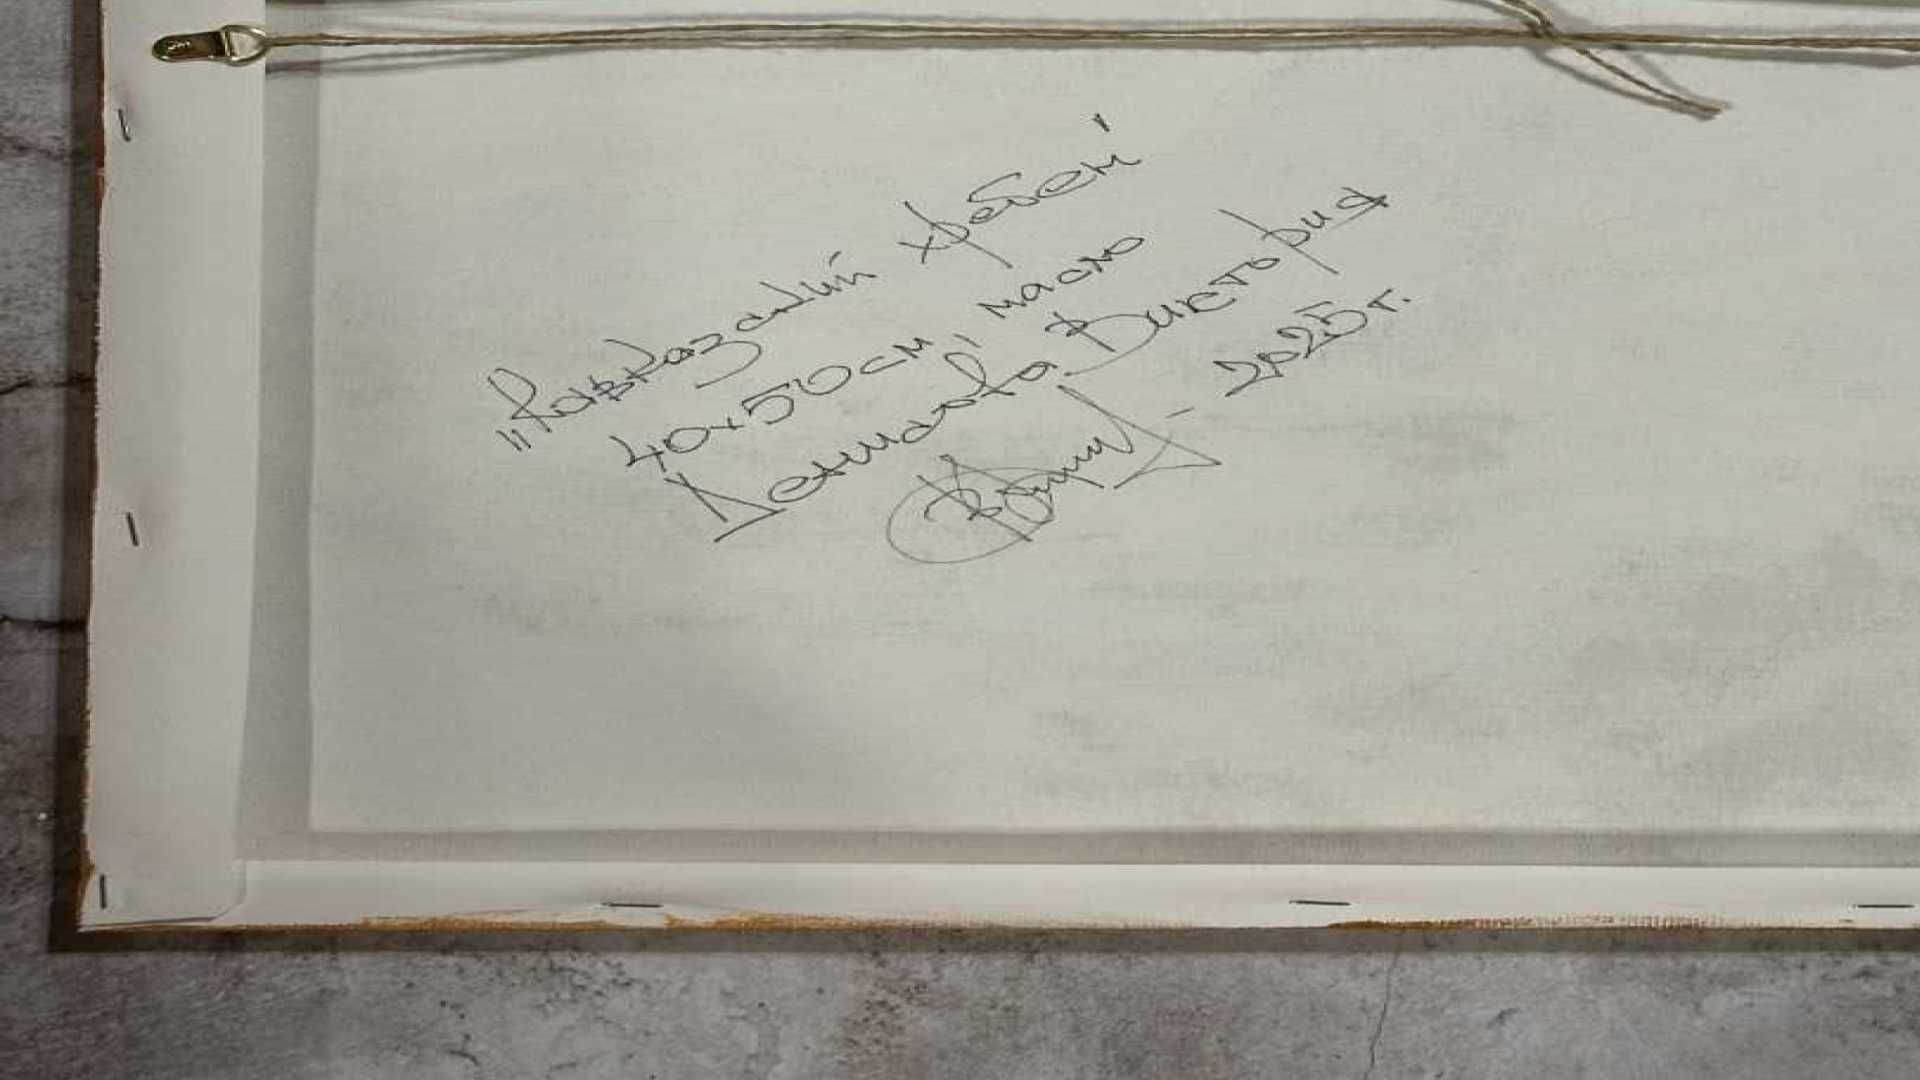 "Кавказский хребет"
40х50см, масло
Виктория
- 2025г.